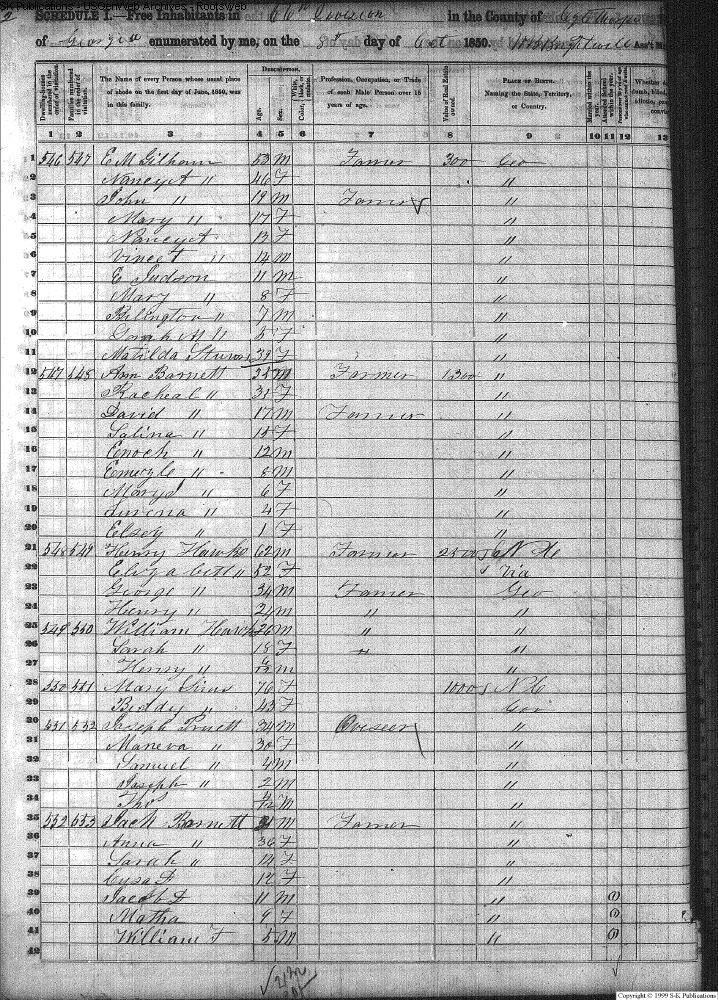 SK Publications - USGenWeb Archives - Rootsweb
SCHEDULE I.—Free Inhabitants in 66th Division in the County of
of Georgia enumerated by me, on the 8th day of Oct 1850. Ass't M
Dwelling-houses numbered in the order of visitation.
Families numbered in the order of visitation.
The Name of every Person whose usual place of abode on the first day of June, 1850, was in this family.
DESCRIPTION.
Age.
Sex.
Color,
Profession, Occupation, or Trade of each Male Person over 15 years of age.
Value of Real Estate owned.
PLACE OF BIRTH. Naming the State, Territory, or Country.
Married within the year.
Whether
1 2 3 4 5 6 7 8 9 10 11 12 13
1 546 547 E M Gilham 53 M Farmer 300 Geo
2 Nancy A " 46 F "
3 John " 19 M Farmer "
4 Mary " 17 F "
5 Nancy A 13 F "
6 " 14 M "
7 E Judson 11 M "
8 Mary " 8 F "
9 " 7 M "
10 " 5 F "
11 Matilda 39 F "
12 547 548 Barnett M Farmer 1300 "
13 Racheal " 31 F "
14 David " 17 M Farmer "
15 Salina " F "
16 Enoch " 12 M "
17 " 8 M "
18 " 6 F "
19 " 4 F "
20 Elsey " 1 F "
21 548 549 Henry Hawks 62 M Farmer N Ca
22 Elizabeth " 52 F Via
23 George " 34 M Farmer Geo
24 Henry " M " "
25 549 550 William M " "
26 Sarah " 18 F "
27 Henry " M "
28 550 551 Mary Sims 76 F 1000 N C
29 Biddy " 43 F Geo
30 551 552 Joseph Pruett 34 M Overseer "
31 Maneva " 30 F "
32 Samuel " 4 M "
33 Joseph " 2 M "
34 Thos M "
35 552 553 Jack Barnett M Farmer "
36 Anna " 36 F "
37 Sarah " 14 F "
38 12 F "
39 Jacob F 11 M " (1)
40 Matha 9 F " (1)
41 William F 5 M " (1)
42
Copyright © 1999 S-K Publications